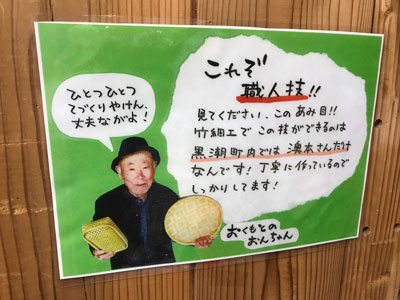 これぞ
職人技!!
見てください、このあみ目!!
竹細工でこの技ができるのは
黒潮町内では 澳本さんだけ
なんです！丁寧に作っているので
しっかりしてます！
ひとつひとつ
てづくりやけん、
丈夫ながよ！
おくもとの
おんちゃん